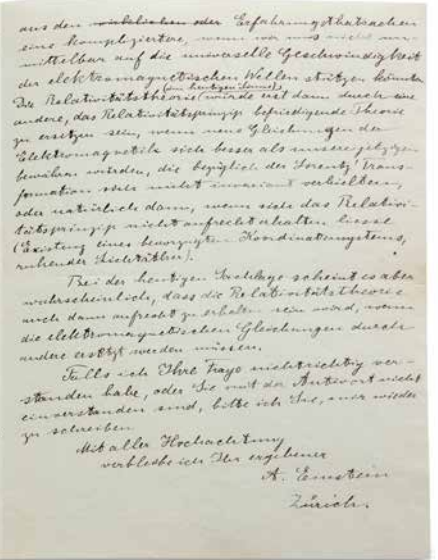 aus den wirklichen oder Erfahrungsthatsachen
eine kompliziertere, wenn wir uns nicht un-
mittelbar auf die universelle Geschwindigkeit
der elektromagnetischen Wellen stützen könnten.
(im heutigen Sinne)
Die Relativitätstheorie würde erst dann durch eine
andere, das Relativitätsprinzip befriedigende Theorie
zu ersetzen sein, wenn neue Gleichungen der
Elektromagnetik sich besser als unsere jetzigen
bewähren würden, die bezüglich der Lorentz' Trans-
formation sich nicht invariant verhielten,
oder natürlich dann, wenn sich das Relativi-
tätsprinzip nicht aufrecht erhalten liesse
(Existenz eines bevorzugten Koordinatensystems,
ruhender Lichtäther).
Bei der heutigen Sachlage scheint es aber
wahrscheinlich, dass die Relativitätstheorie
auch dann aufrecht zu erhalten sein wird, wenn
die elektromagnetischen Gleichungen durch
andere ersetzt werden müssen.
Falls ich Ihre Frage nicht richtig ver-
standen habe, oder Sie mit der Antwort nicht
einverstanden sind, bitte ich Sie, mir wieder
zu schreiben.
Mit aller Hochachtung
verbleibe ich Ihr ergebener
A. Einstein
Zürich.